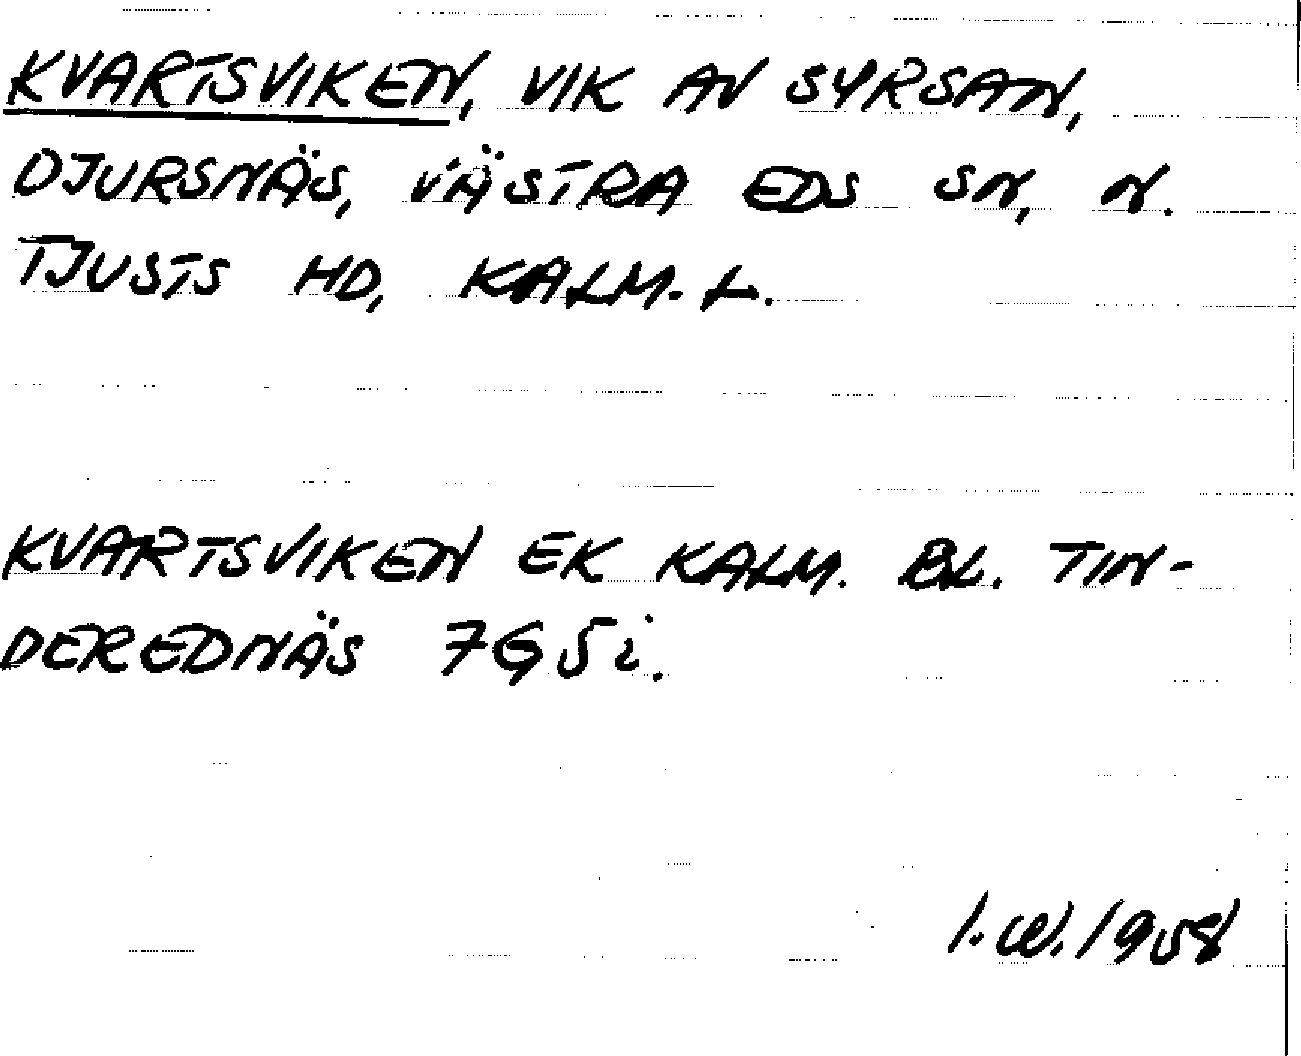 KVARTSVIKEN, VIK AV SYRSAN,
DJURSNÄS, VÄSTRA EDS SN, N.
TJUSTS HD, KALM. L.
KVARTSVIKEN EK KALM. BL. TIN-
DEREDNÄS 7G5i.
I.W. 1958